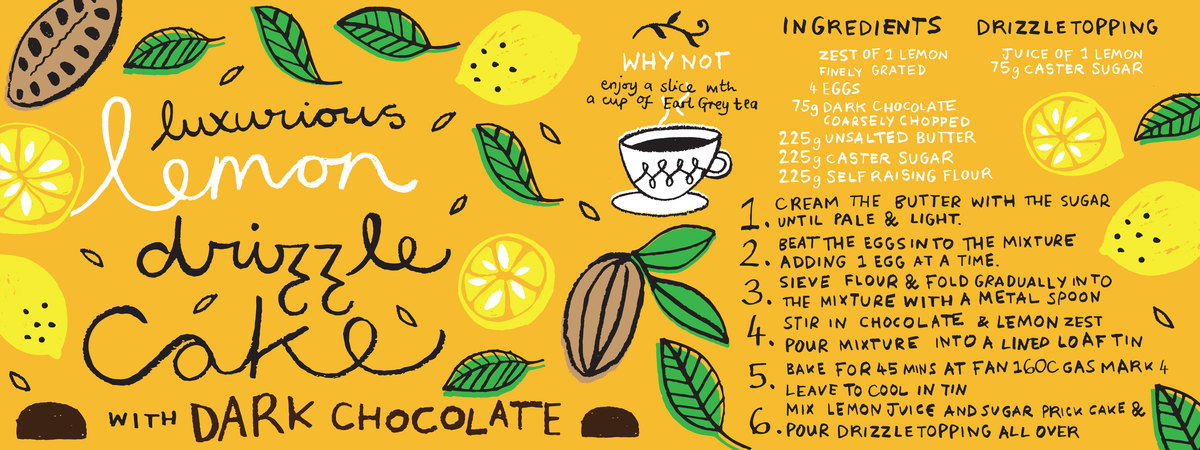 luxurious
lemon
drizzle
cake
WITH DARK CHOCOLATE
WHY NOT
enjoy a slice with
a cup of Earl Grey tea
INGREDIENTS
ZEST OF 1 LEMON
FINELY GRATED
4 EGGS
75g DARK CHOCOLATE
COARSELY CHOPPED
225g UNSALTED BUTTER
225g CASTER SUGAR
225g SELF RAISING FLOUR
DRIZZLE TOPPING
JUICE OF 1 LEMON
75g CASTER SUGAR
1. CREAM THE BUTTER WITH THE SUGAR
UNTIL PALE & LIGHT.
2. BEAT THE EGGS INTO THE MIXTURE
ADDING 1 EGG AT A TIME.
3. SIEVE FLOUR & FOLD GRADUALLY INTO
THE MIXTURE WITH A METAL SPOON
4. STIR IN CHOCOLATE & LEMON ZEST
POUR MIXTURE INTO A LINED LOAF TIN
5. BAKE FOR 45 MINS AT FAN 160C GAS MARK 4
LEAVE TO COOL IN TIN
6. MIX LEMON JUICE AND SUGAR PRICK CAKE &
POUR DRIZZLE TOPPING ALL OVER